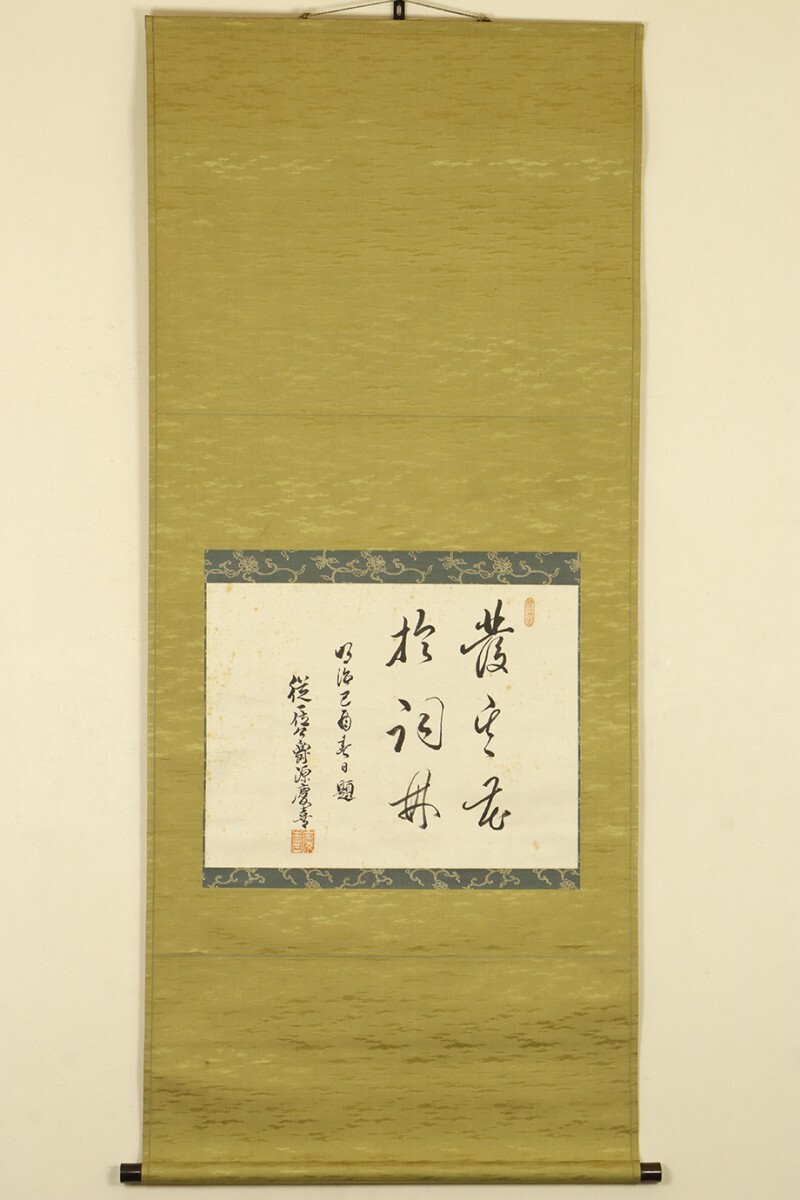 發其花
於詞林
明治己酉春日題
從一位公爵源慶喜